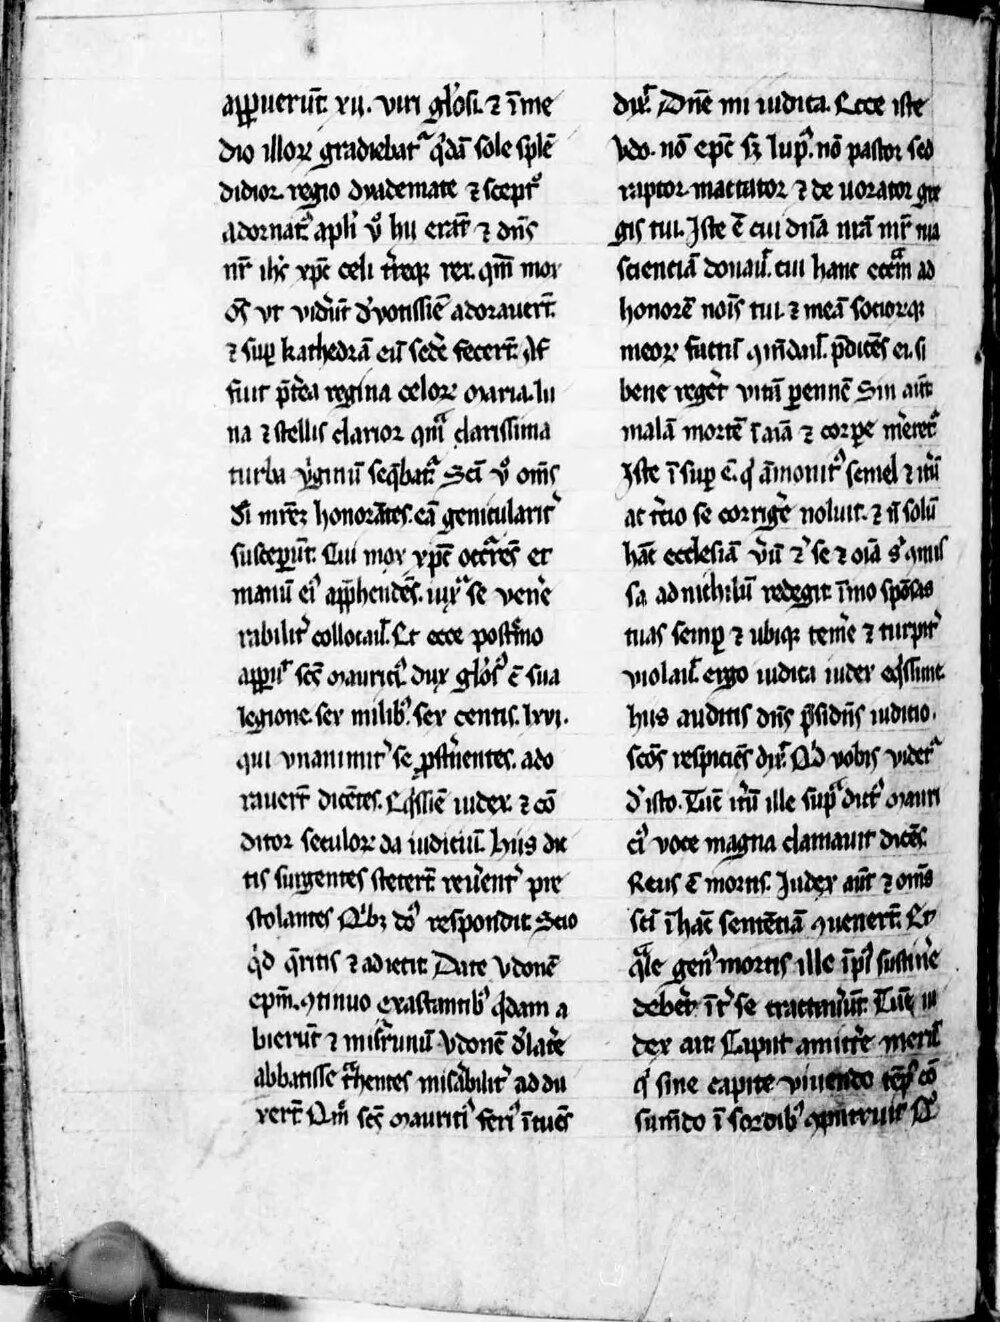 apparuerūt. xii. viri gl'osi. ⁊ ī me
dio illoꝝ gradiebat᷑ qͥdā sole splē
didior. regio dyademate ⁊ sceptͦ
adornatꝰ. apl'i v̾ hii erāt ⁊ dn̄s
nr̄ ih̄s xp̄c celi t̾req; rex. qm̄ mox
oēs vt vidert̄ d'votissīe adorauert̄.
⁊ suꝑ kathedrā eū sed'e fecert̄. Af
fuit p̄t'ea regina celoꝝ maria. lu
na ⁊ stellis clarior qm̄ clarissima
turba v'ginū seq̄bat᷑. Scī v̾ om̄s
d'i mr̄eꝫ honorātes. eā genicularit̾
susceperūt. Cui mox xp̄c occr̄ēs et
manū eiꝰ app̄hendēs. iuxͣ se vene
rabilit̾ collocauit. Et ecce postͤmo
appuit sc̄s mauriciꝰ dux gl'osꝰ cū sua
legione. sex milibꝰ. sex centis. lxvi.
qui vnanimit̾ se ꝓst̾nentes. ado
rauert̄ dicētes. Eq̄ssīe iudex. ⁊ cō
ditor seculoꝝ da iudiciū. Hiis dic
tis surgentes stetert̄ reu'ent̾ pre
stolantes Qͥbꝫ dn̄s respondit. Scio
qͥd q̄ritis ⁊ adiecit. Date vdonē
epm̄. ꝯtinuo exastantibꝰ qͥdam a
bierūt ⁊ miserrimū vdonē d'lat'e
abbatisse tͣhentes misabilit̾ addu
xert̄. Qm̄ sc̄s mauritiꝰ ferit̾ ītuēs
dix̄. Dn̄e mi iudica. Ecce iste
vdo. nō epc̄ sꝫ lupꝰ. nō pastor sed
raptor. mactator ⁊ de uorator gre
gis tui. Iste ē cui dn̄a mā mr̄ tua
scienciā donauit. cui hanc ecciam ad
honorē nois tui. ⁊ meā socioꝝq;
meoꝝ factis ꝯmdauit. p̄dicēs ei. si
bene reger̄ vitā ꝑennē. Sin aūt
malā mortē ī aīa ⁊ corpe m'eret᷑
Iste īsuꝑ ē. qͥ āmonitꝰ semel ⁊ itū
ac t'cio se corrig'e noluit. ⁊ nō solū
hāc ecclesiā v'ū ⁊ se ⁊ oīa sͥ ꝯmis
sa ad nichilū redegit. īmo spōsas
tuas semꝑ ⁊ ubiq; tem'e ⁊ turpit̾
violauit. ergo iudica iudex eq̄ssime.
Hiis auditis dn̄s p̄sidn̄s iudicio.
scōs respiciēs dix̄. Qͥd vobis videt᷑
d' isto. Tūc itū ille supͣdict᷑ mauri
ciꝰ voce magna clamauit dicēs.
Reus ē mortis. Iudex aūt ⁊ om̄s
sci ī hāc sentētiā ꝯuenert̄. Et
q̄le genꝰ mortis ille īpiꝰ sustin'e
deber̄ īt̾ se tractauert̄. Tūc iu
dex ait. Caput amitt'e meruit
qͥ sine capite viuendo tēpꝰ cō
sum̄do ī sordibꝰ ꝯputruit.